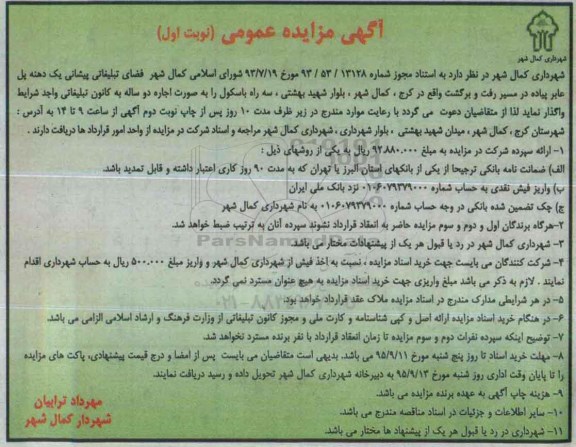 آگهی مزایده عمومی (نوبت اول)
شهرداری کمال شهر
شهرداری کمال شهر در نظر دارد به استناد مجوز شماره ۱۳۱۲۸ / ۵۳ / ۹۳ مورخ ۹۳/۷/۱۹ شورای اسلامی کمال شهر فضای تبلیغاتی پیشانی یک دهنه پل
عابر پیاده در مسیر رفت و برگشت واقع در کرج ، کمال شهر ، بلوار شهید بهشتی ، سه راه باسکول را به صورت اجاره دو ساله به کانون تبلیغاتی واجد شرایط
واگذار نماید لذا از متقاضیان دعوت می گردد با رعایت موارد مندرج در زیر ظرف مدت ۱۰ روز پس از چاپ نوبت دوم آگهی از ساعت ۹ تا ۱۴ به آدرس :
شهرستان کرج ، کمال شهر ، میدان شهید بهشتی ، بلوار شهرداری ، شهرداری کمال شهر مراجعه و اسناد شرکت در مزایده از واحد امور قرارداد ها دریافت دارند .
۱- ارائه سپرده شرکت در مزایده به مبلغ ۹۲،۸۸۰،۰۰۰ ریال به یکی از روشهای ذیل :
الف) ضمانت نامه بانکی ترجیحا از یکی از بانکهای استان البرز یا تهران که به مدت ۹۰ روز کاری اعتبار داشته و قابل تمدید باشد.
ب) واریز فیش نقدی به حساب شماره ۰۱۰۶۰۷۹۳۷۹۰۰۰ نزد بانک ملی ایران
ج) چک تضمین شده بانکی در وجه حساب شماره ۰۱۰۶۰۷۹۳۷۹۰۰۰ به نام شهرداری کمال شهر
۲-هرگاه برندگان اول و دوم و سوم مزایده حاضر به انعقاد قرارداد نشوند سپرده آنان به ترتیب ضبط خواهد شد.
۳- شهرداری کمال شهر در رد یا قبول هر یک از پیشنهادات مختار می باشد.
۴- شرکت کنندگان می بایست جهت خرید اسناد مزایده ، نسبت به اخذ فیش از شهرداری کمال شهر و واریز مبلغ ۵۰۰،۰۰۰ ریال به حساب شهرداری اقدام
نمایند . لازم به ذکر می باشد مبلغ واریزی جهت خرید اسناد مزایده به هیچ عنوان مسترد نمی گردد.
۵- در هر شرایطی مدارک مندرج در اسناد مزایده ملاک عقد قرارداد خواهد بود.
۶- در هنگام خرید اسناد مزایده ارائه اصل و کپی شناسنامه و کارت ملی و مجوز کانون تبلیغاتی از وزارت فرهنگ و ارشاد اسلامی الزامی می باشد.
۷- توضیح اینکه سپرده نفرات دوم و سوم مزایده تا زمان انعقاد قرارداد با نفر برنده مسترد نخواهد شد.
۸- مهلت خرید اسناد تا روز پنج شنبه مورخ ۹۵/۹/۱۱ می باشد. بدیهی است متقاضیان می بایست پس از امضا و درج قیمت پیشنهادی، پاکت های مزایده
را تا پایان وقت اداری روز شنبه مورخ ۹۵/۹/۱۳ به دبیرخانه شهرداری کمال شهر تحویل داده و رسید دریافت نمایند.
۹- هزینه چاپ آگهی به عهده برنده مزایده می باشد.
۱۰- سایر اطلاعات و جزئیات در اسناد مناقصه مندرج می باشد.
۱۱- شهرداری در رد یا قبول هر یک از پیشنهاد ها مختار می باشد.
مهرداد ترابیان
شهردار کمال شهر